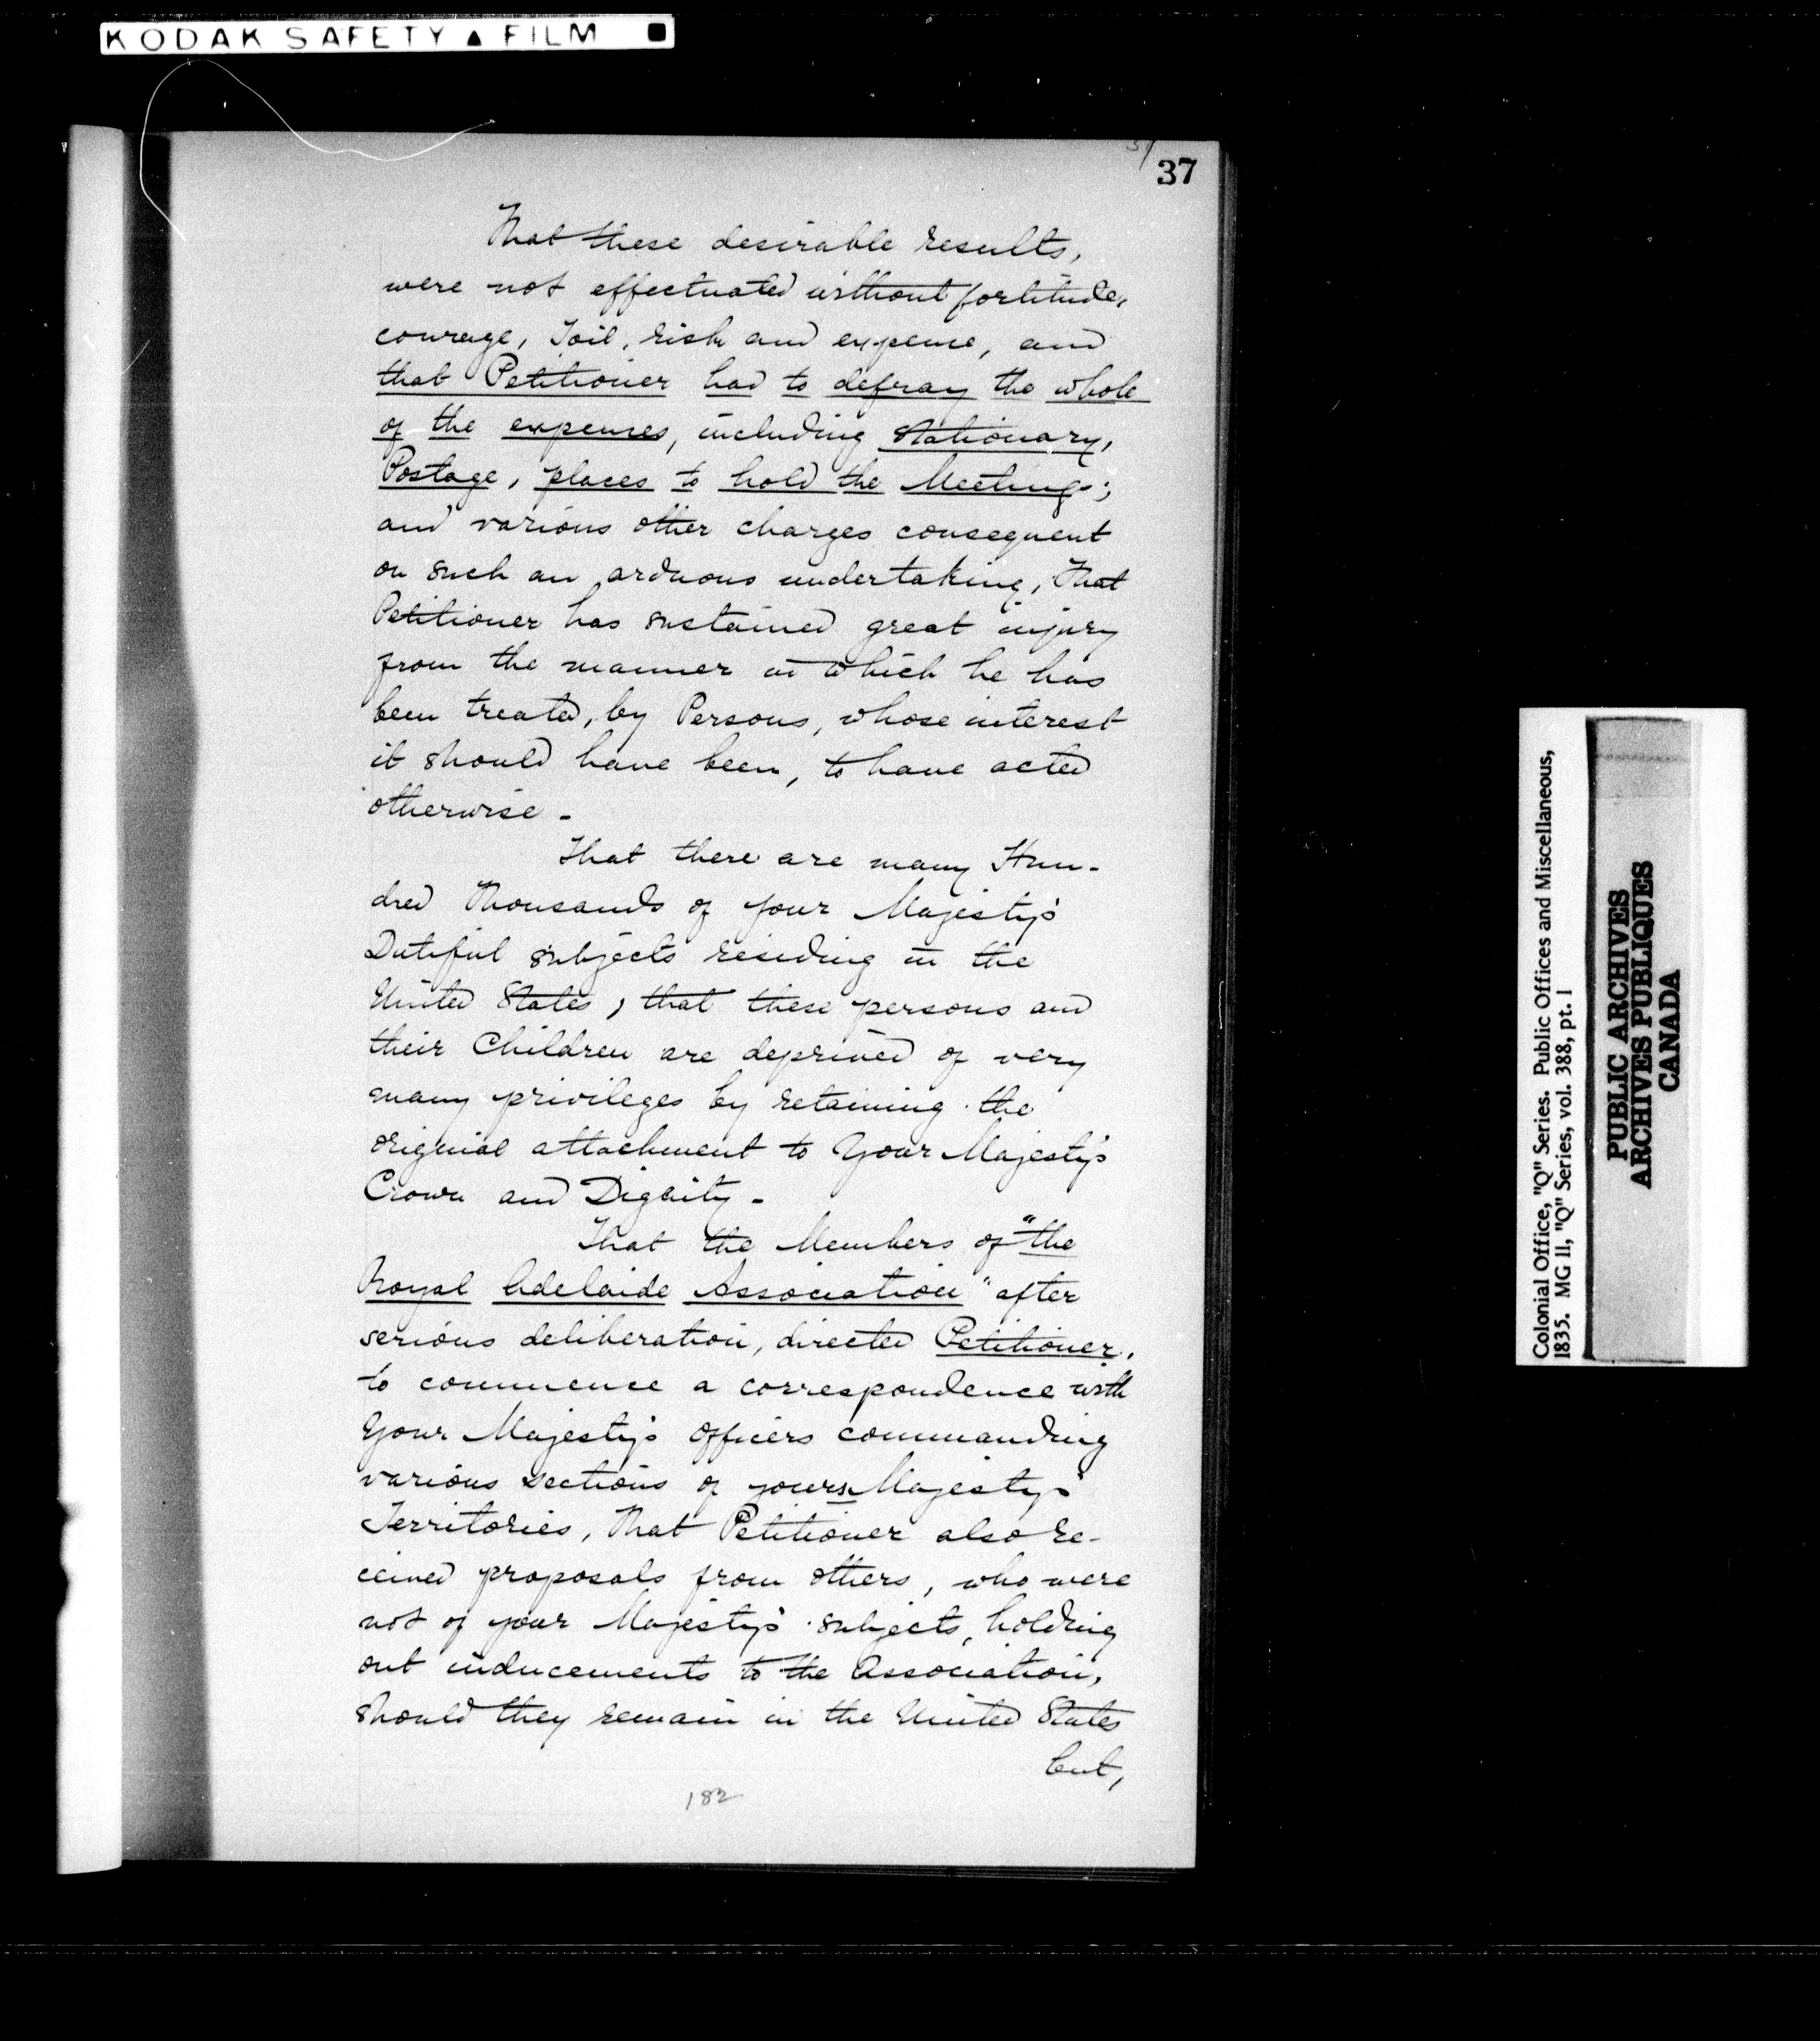 KODAK SAFETY ▲ FILM
37
That these desirable results,
were not effectuated without fortitude,
courage, Toil, risk and expense, and
that Petitioner had to defray the whole
of the expenses, including Stationary,
Postage, places to hold the Meetings;
and various other charges consequent
on such an arduous undertaking, That
Petitioner has sustained great injury
from the manner in which he has
been treated, by Persons, whose interest
it should have been, to have acted
otherwise -
That there are many Hun-
dred Thousands of your Majesty's
Dutiful subjects residing in the
United States, that these persons and
their Children are deprived of very
many privileges by retaining the
original attachment to Your Majesty's
Crown and Dignity -
That the Members of "the
Royal Adelaide Association" after
serious deliberation, directed Petitioner,
to commence a correspondence with
Your Majesty's Officers commanding
various sections of yours Majesty's
Territories, That Petitioner also re-
ceived proposals from others, who were
not of your Majesty's subjects, holding
out inducements to the Association,
should they remain in the United States
but,
182
Colonial Office, "Q" Series. Public Offices and Miscellaneous,
1835. MG 11, "Q" Series, vol. 388, pt. 1
PUBLIC ARCHIVES
ARCHIVES PUBLIQUES
CANADA